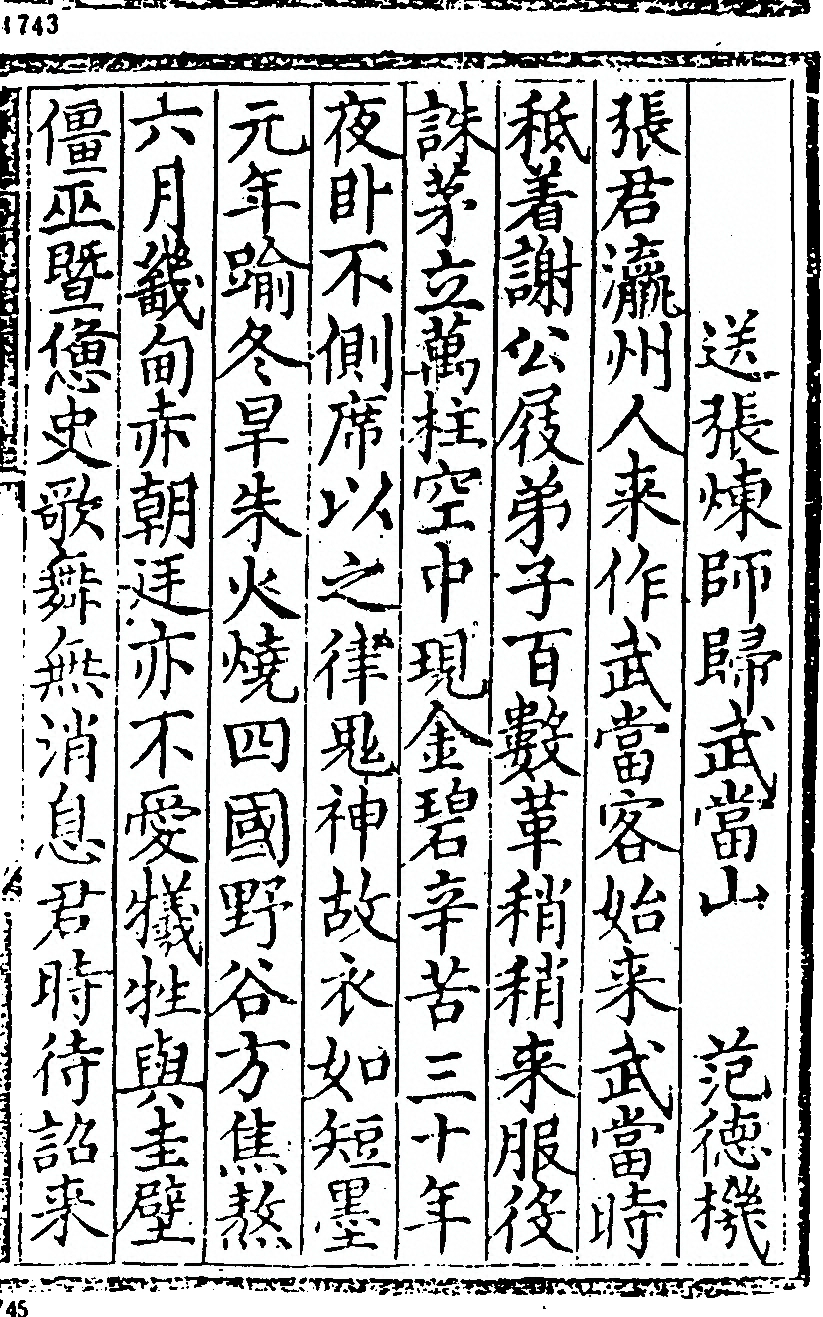 1743
送張煉師歸武當山 范德機
張君瀛州人来作武當客始来武當時
秪着謝公屐弟子百數輩稍稍来服役
誅茅立萬柱空中現金碧辛苦三十年
夜卧不側席以之律鬼神故衣如短墨
元年踰冬旱朱火燒四國野谷方焦熬
六月畿甸赤朝廷亦不愛犠牲與圭璧
僵巫暨憊史歌舞無消息君時待詔来
745